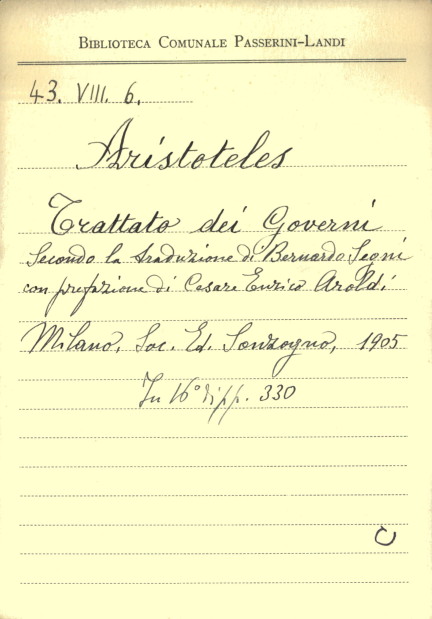 BIBLIOTECA COMUNALE PASSERINI-LANDI
43. VIII. 6.
Aristoteles
Trattato dei Governi
secondo la traduzione di Bernardo Segni
con prefazione di Cesare Enrico Aroldi
Milano, Soc. Ed. Sonzogno, 1905
In 16° di pp. 330
C